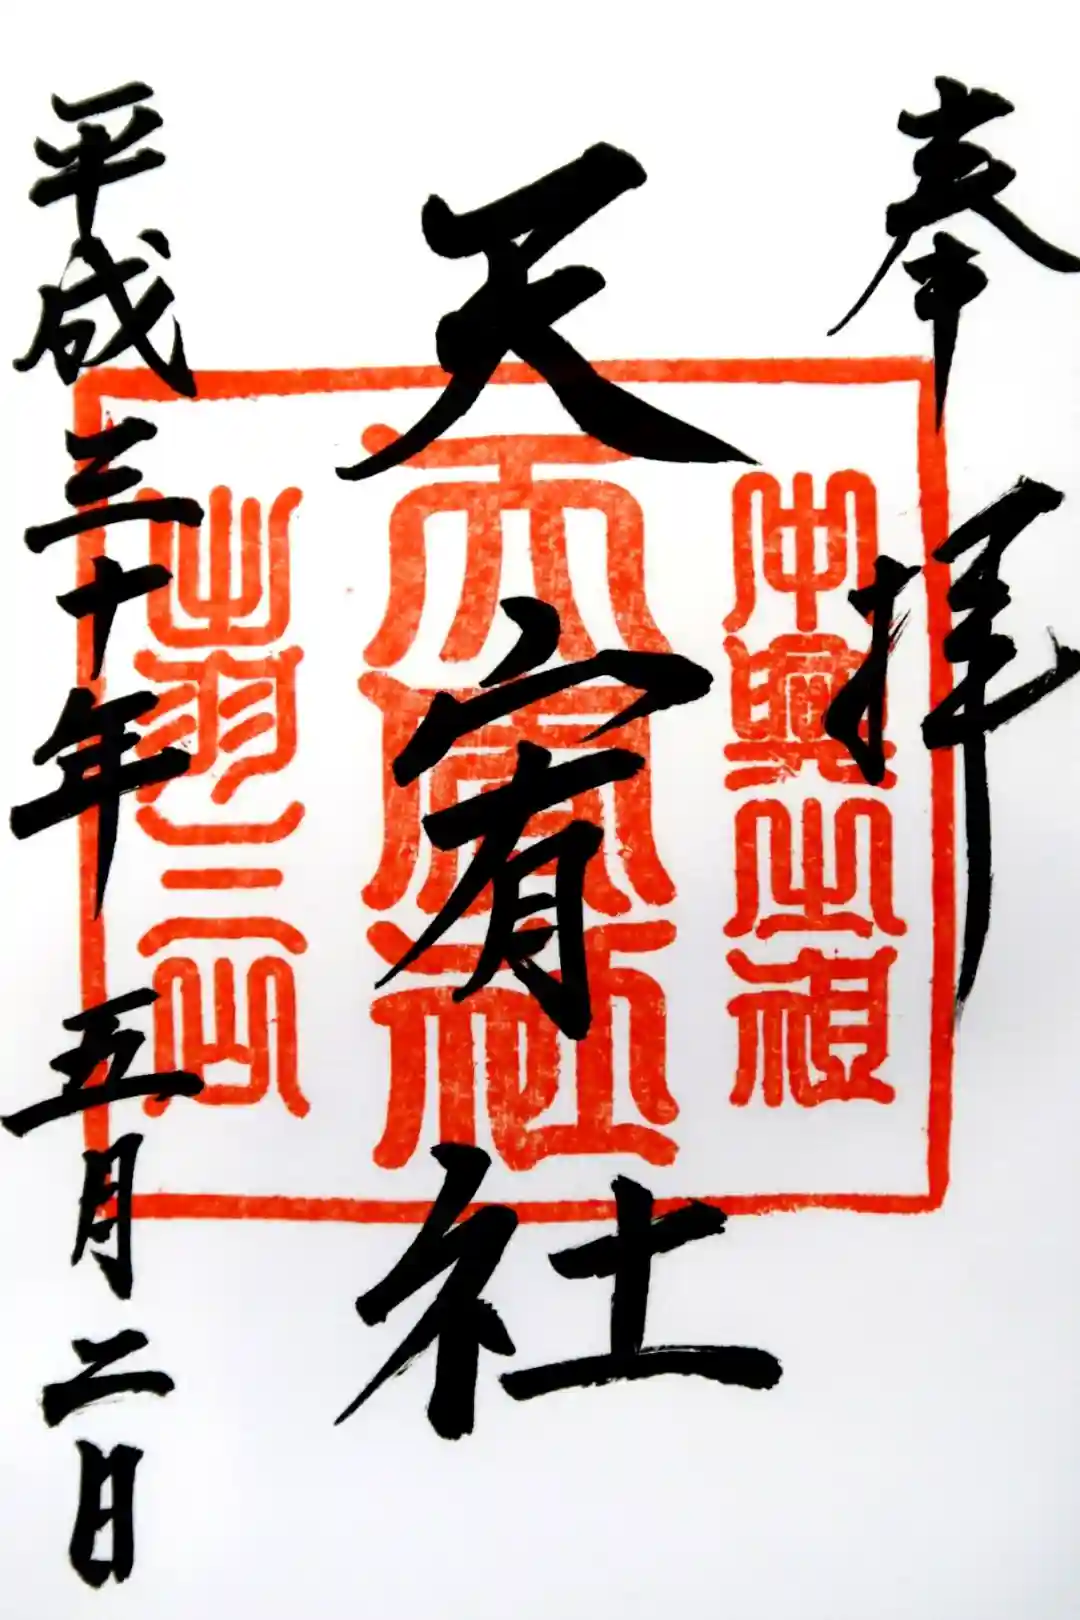 奉拝
天宥社
中興之祖
天宥社
出羽三山
平成三十年五月二日